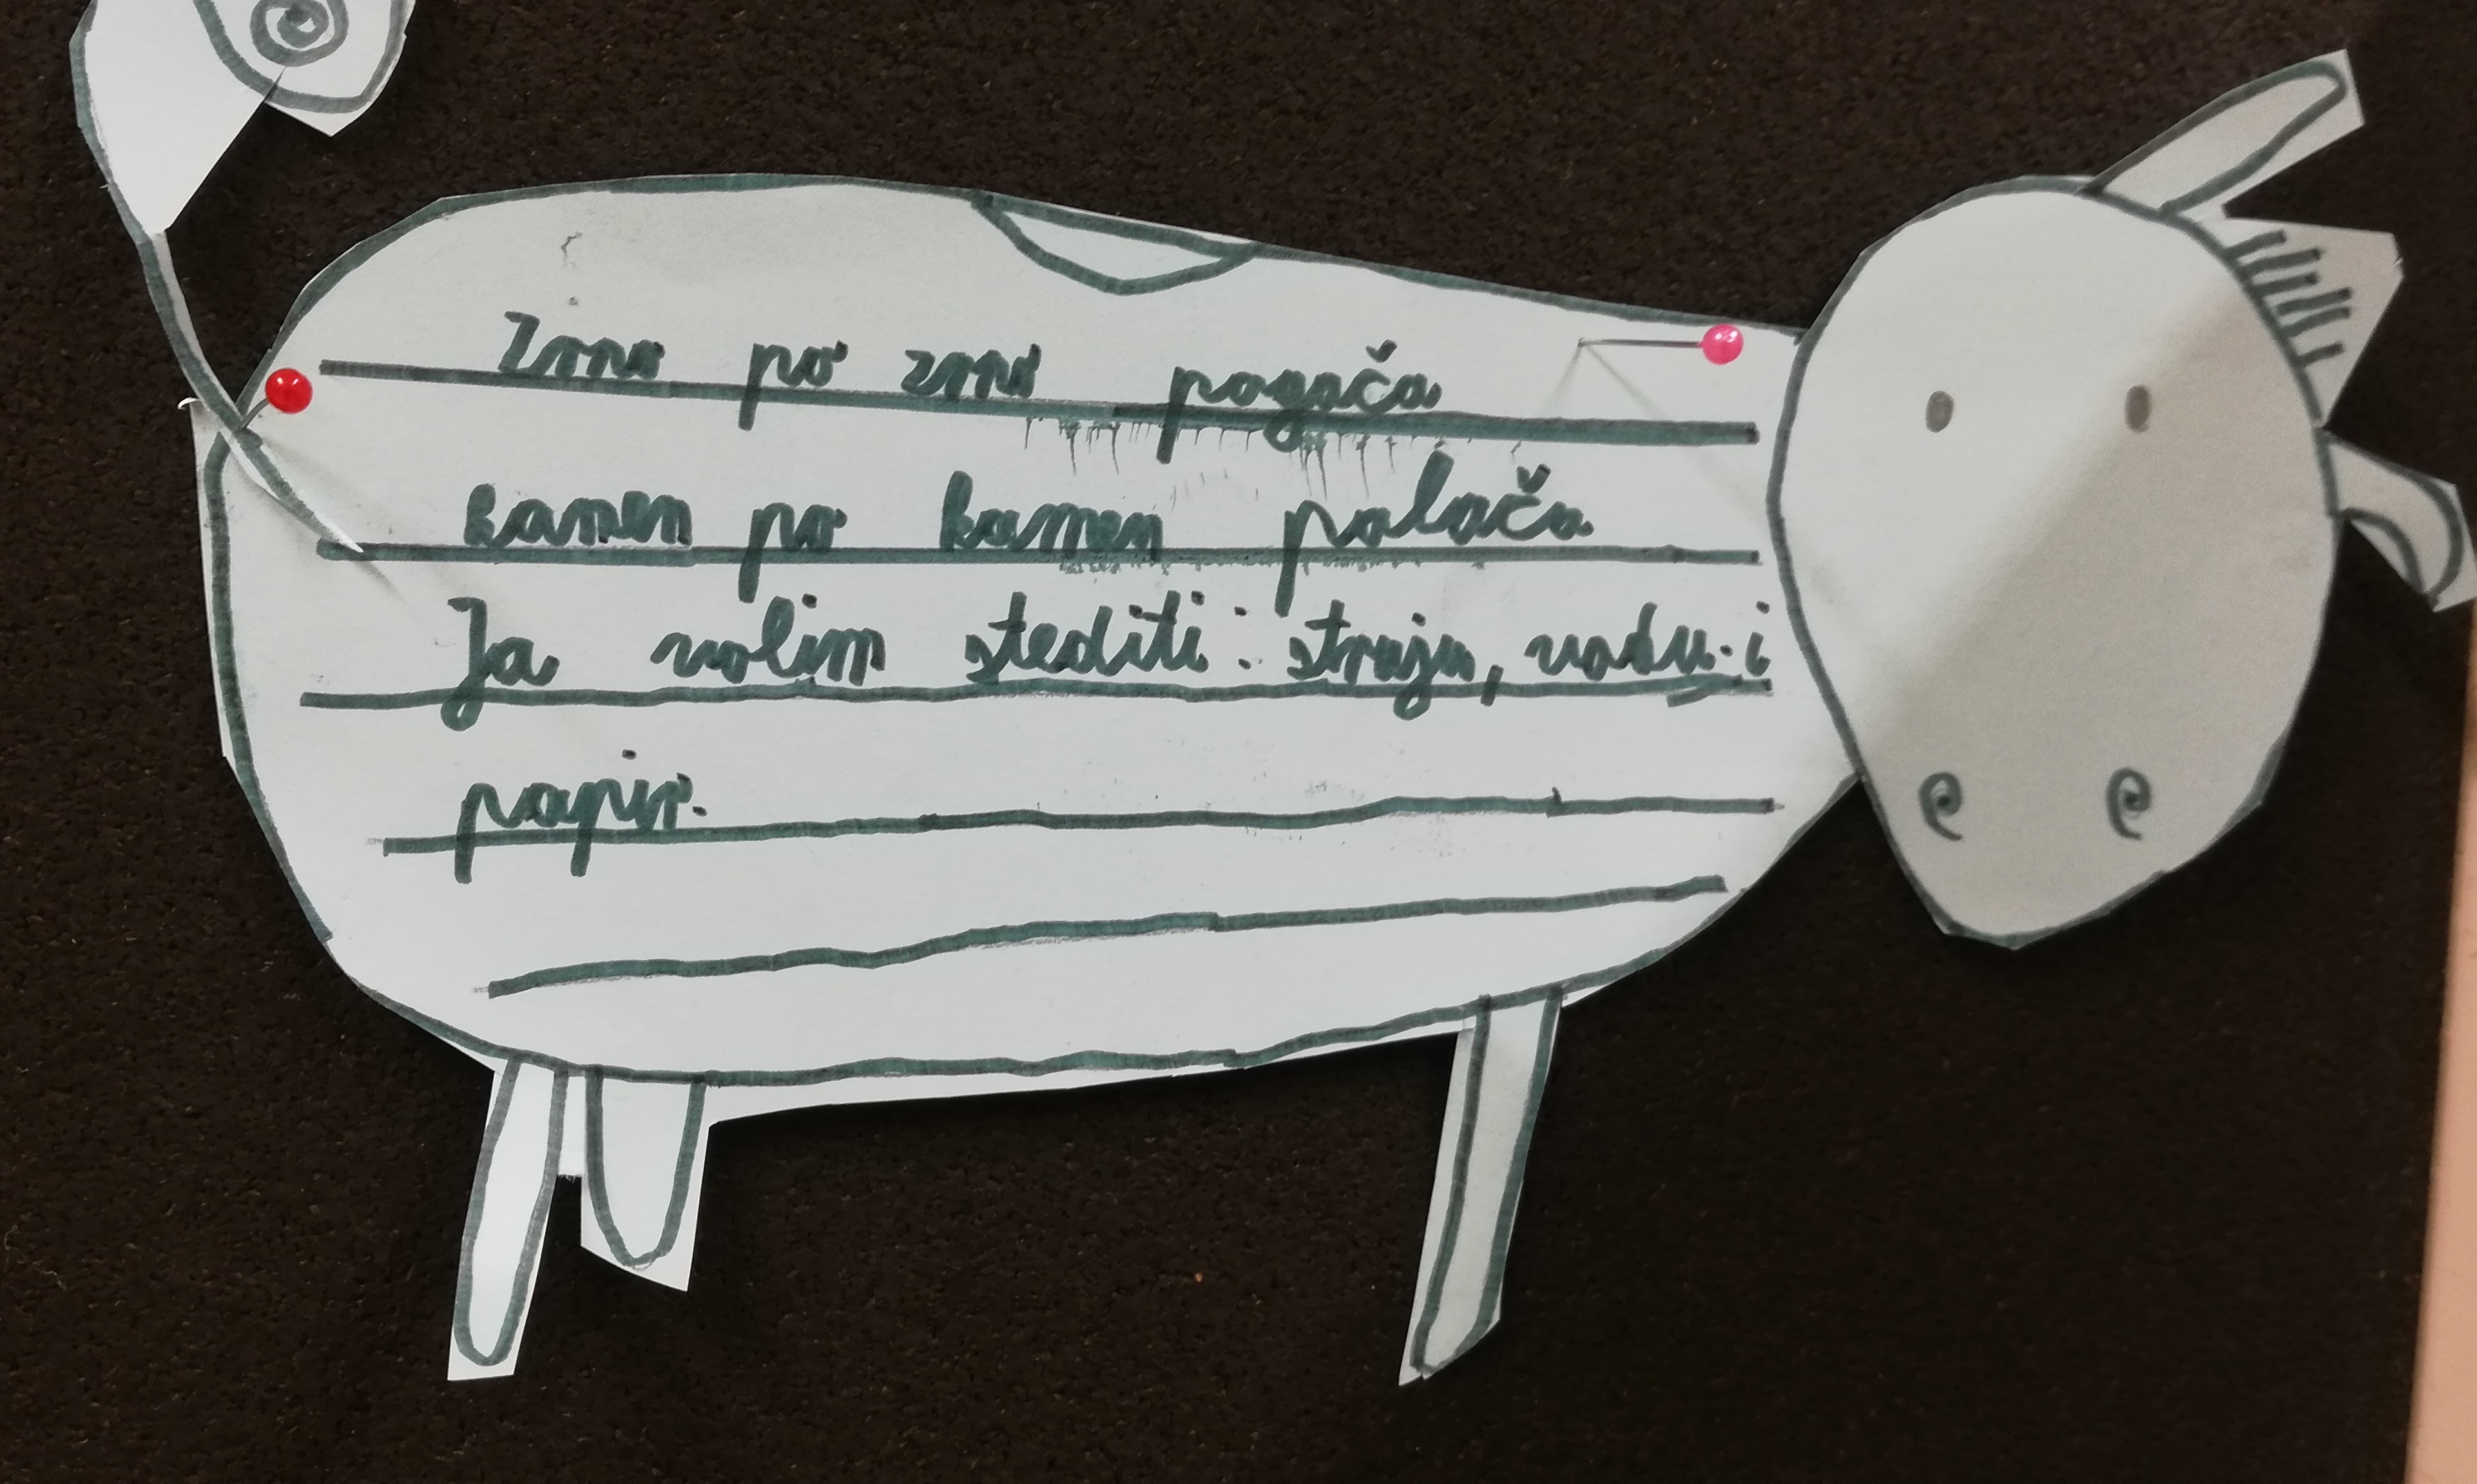 Zrno po zrno pogača
kamen po kamen palača
Ja volim stediti: struju, vodu i
papir.